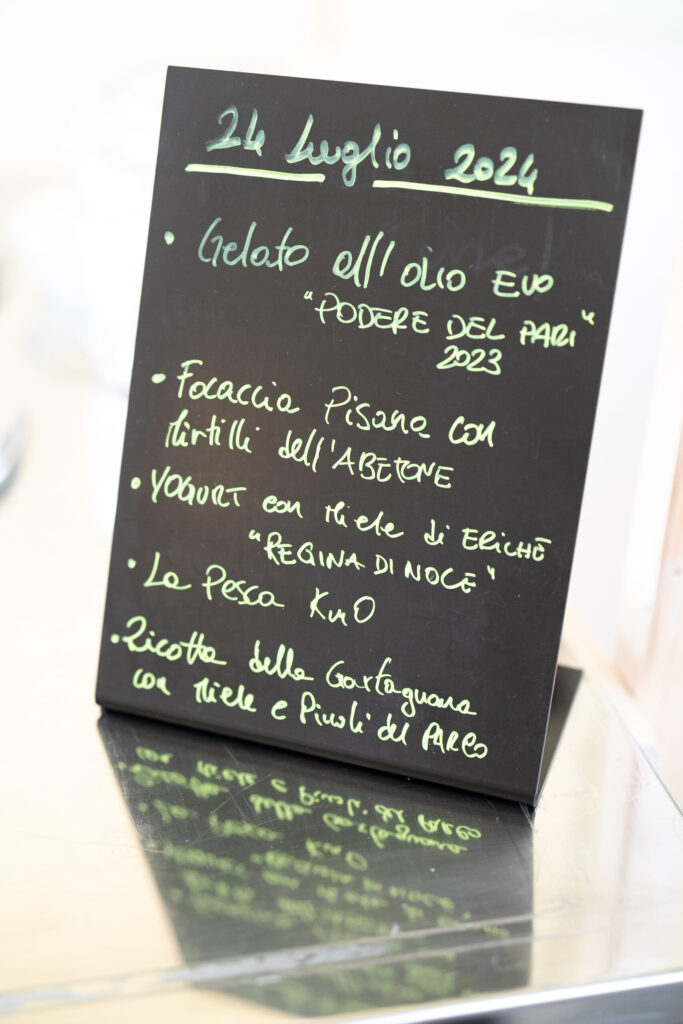 24 Luglio 2024
• Gelato all'olio EVO
"PODERE DEL PARI"
2023
• Focaccia Pisana con
Mirtilli dell'ABETONE
• YOGURT con Miele di ERICHE
"REGINA DI NOCE"
• La Pesca Km0
• Ricotta della Garfagnana
con Miele e Pinoli del PARCO